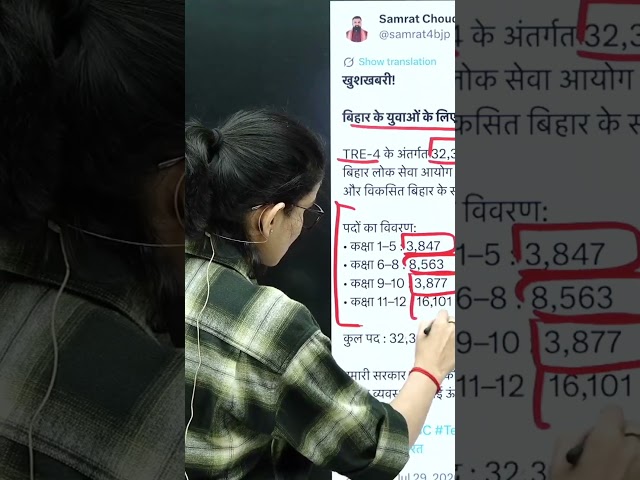 Samrat Choud
@samrat4bjp
Show translation
खुशखबरी!
बिहार के युवाओं के लिए
TRE-4 के अंतर्गत 32,3
बिहार लोक सेवा आयोग
और विकसित बिहार के स
पदों का विवरण:
• कक्षा 1–5 : 3,847
• कक्षा 6–8 : 8,563
• कक्षा 9–10 : 3,877
• कक्षा 11–12 : 16,101
कुल पद : 32,3
मारी सरकार
के अंतर्गत 32,3
लोक सेवा आयोग
कसित बिहार के स
विवरण:
1–5 : 3,847
6–8 : 8,563
9–10 3,877
11–12 16,101
32,3